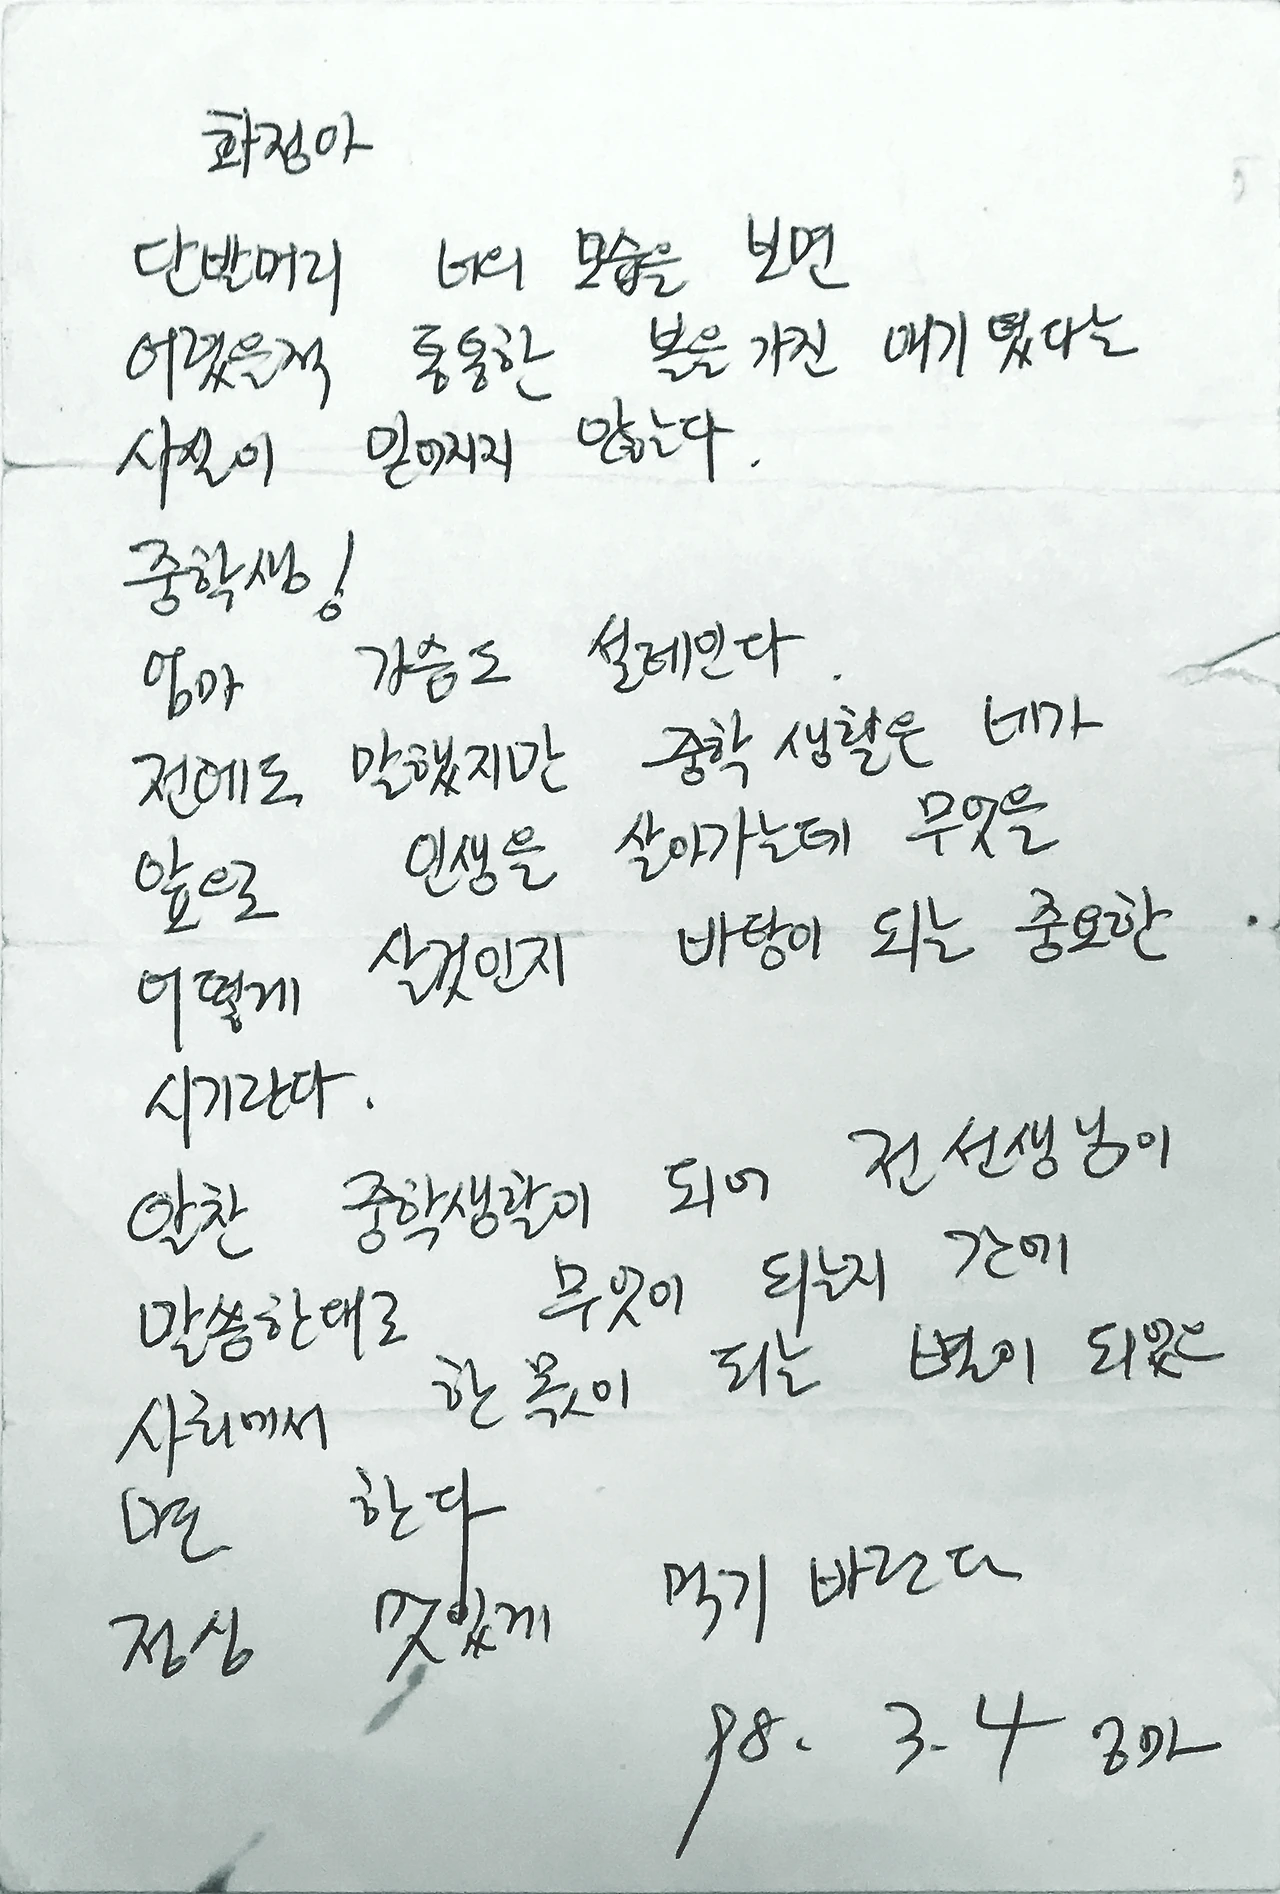 화정아
단발머리 너의 모습을 보면
어렸을적 통통한 볼을 가진 애기였다는
사실이 믿어지지 않는다.
중학생!
엄마 가슴도 설레인다.
전에도 말했지만 중학생활은 네가
앞으로 인생을 살아가는데 무엇을
어떻게 살것인지 바탕이 되는 중요한
시기란다.
알찬 중학생활이 되어 전 선생님이
말씀한대로 무엇이 되는지 간에
사회에서 한 몫이 되는 별이 되었으
면 한다
점심 맛있게 먹기 바란다
98. 3. 4 엄마